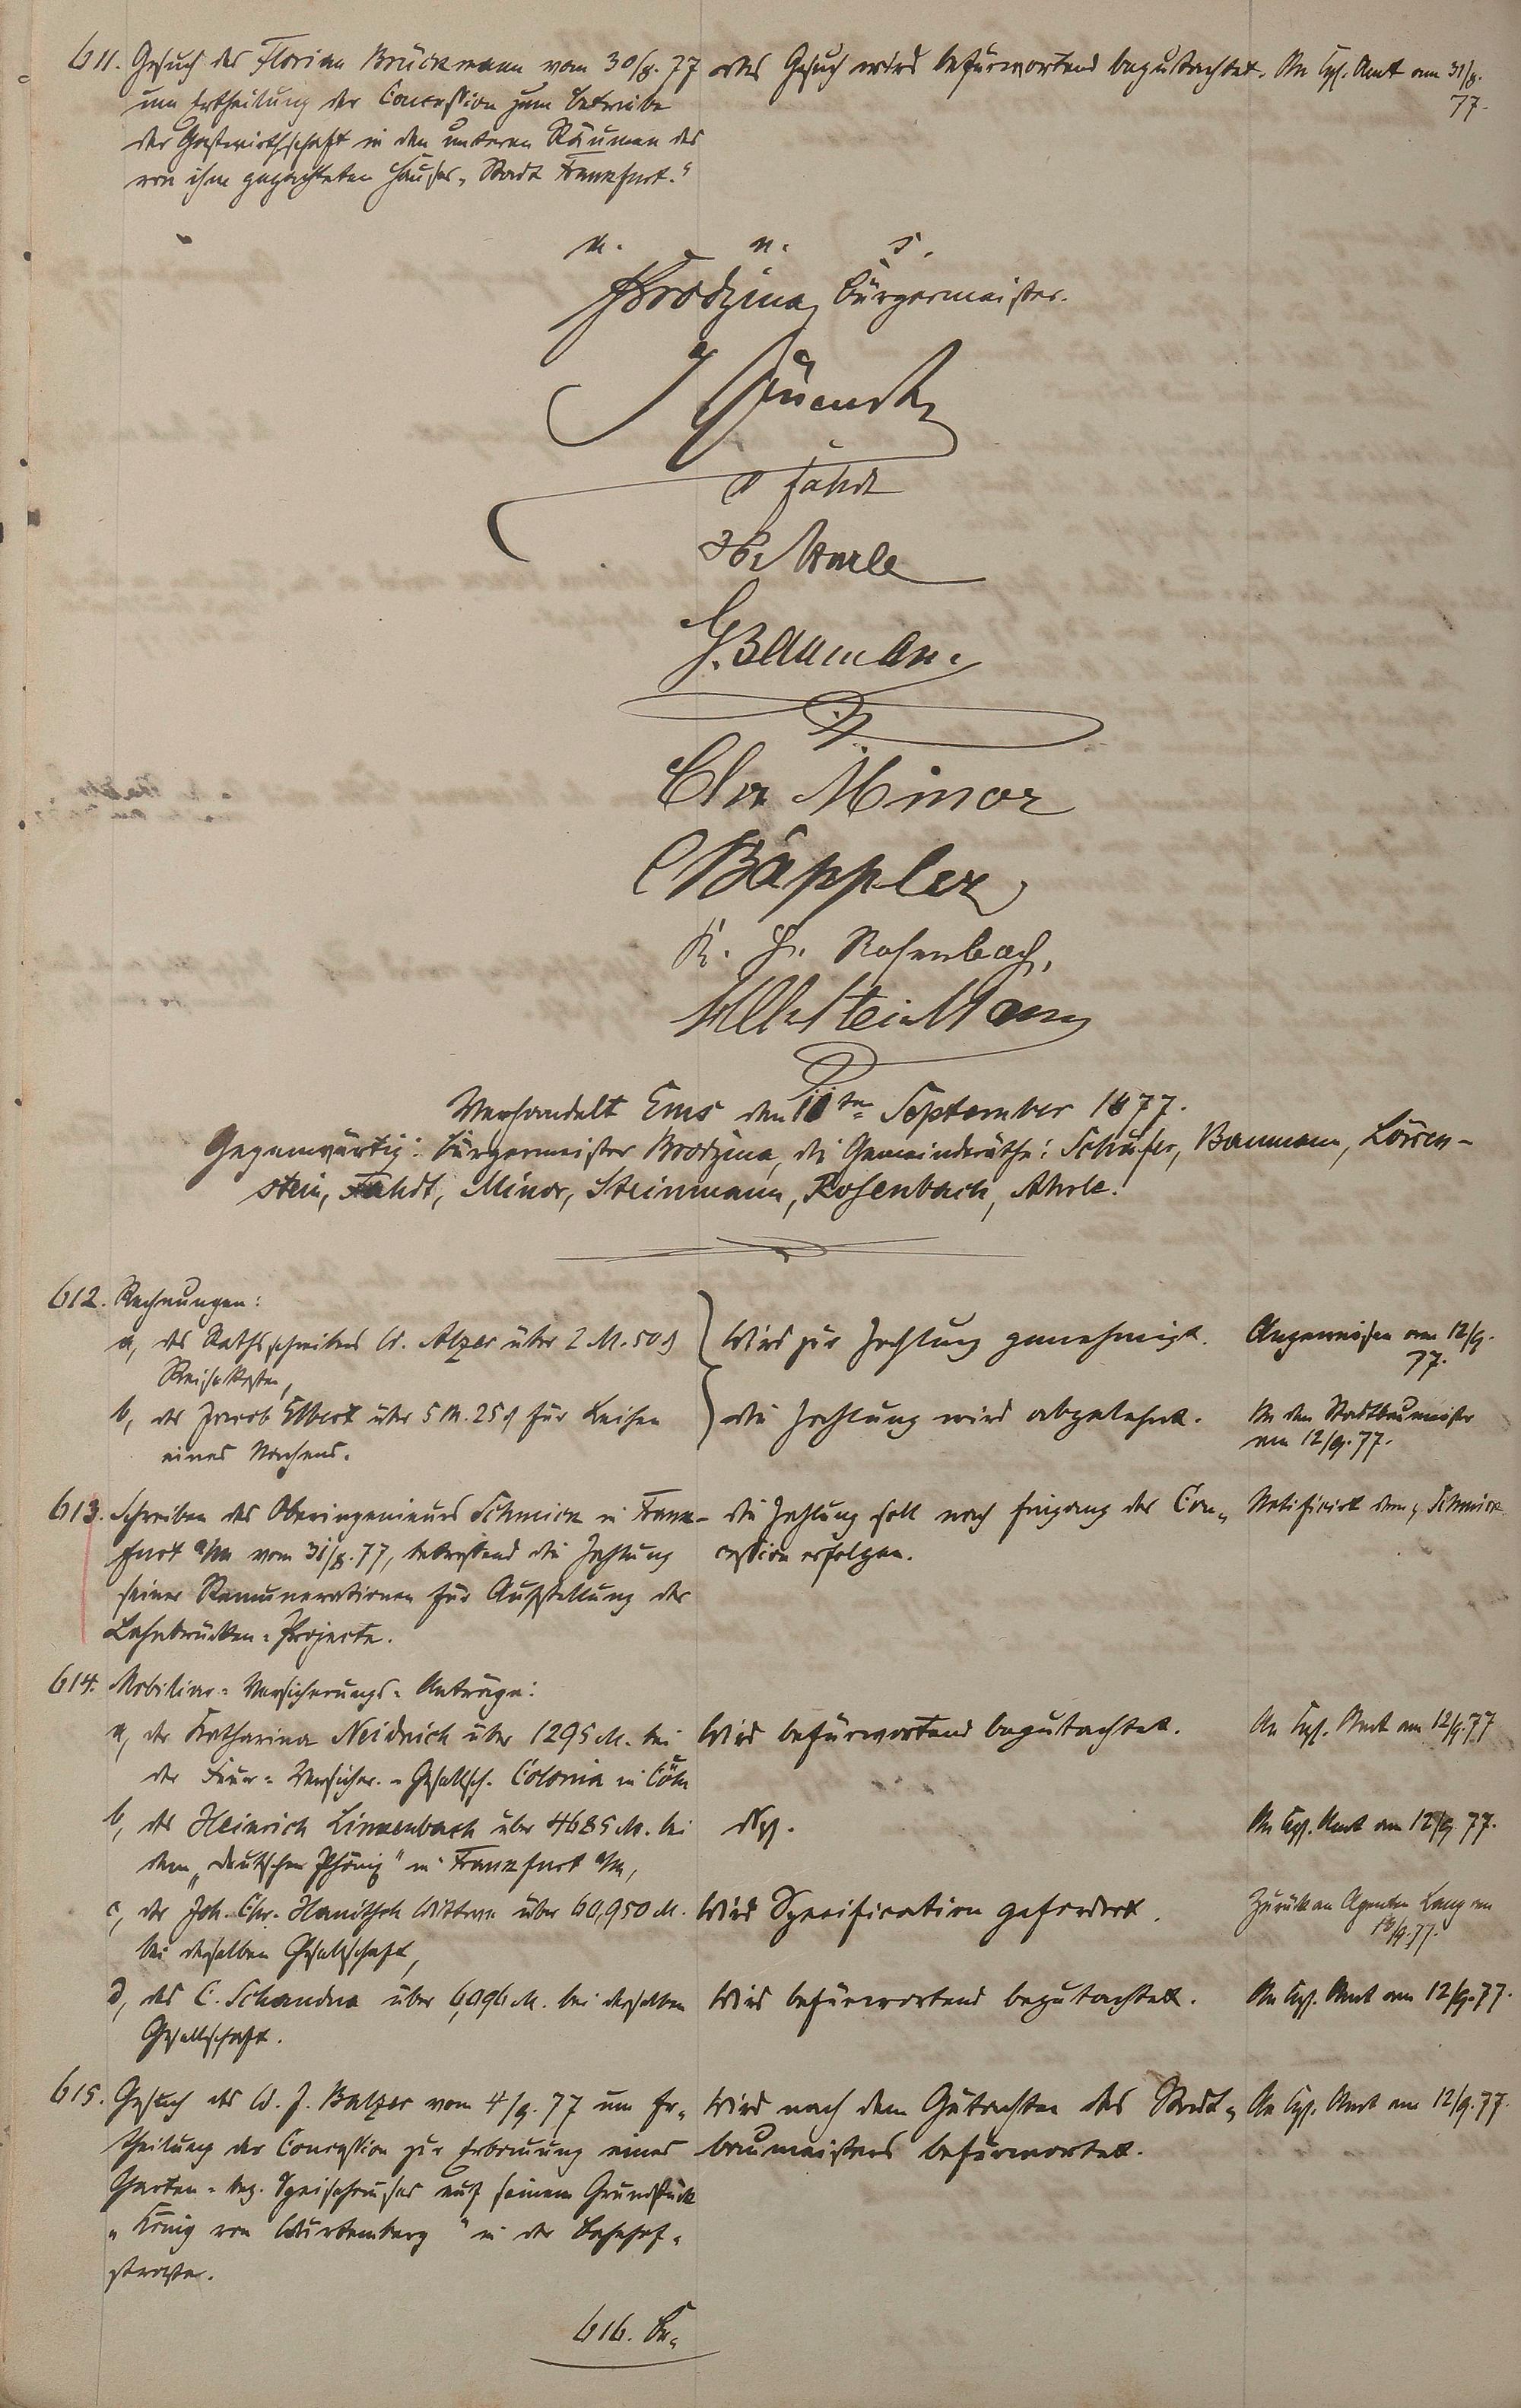 611. Gesuch des Florian Brückmann vom 30/8. 77
um Ertheilung der Concession zum Betriebe
der Gastwirthschaft in den unteren Räumen des
von ihm gepachteten Hauses „Stadt Frankfurt."
das Gesuch wird befürwortend begutachtet.
An Kgl. Amt am 31/8.
77.
v. n. s.
Brodzina, Bürgermeister.
Fahdt
G. Bauman
Chr Minor
Bäppler
K. H. Rosenbach,
Wilh Steinman
Verhandelt Ems den 11ten September 1877.
Gegenwärtig: Bürgermeister Brodzina, die Gemeinderäthe: Schäfer, Baumann, Löwen-
stein, Fahdt, Minor, Steinmann, Rosenbach, Ahrle.
612. Rechnungen:
a, des Rathsschreibers W. Alzer über 2 M. 50 ₰
Reisekosten,
Wird zur Zahlung genehmigt.
Angewiesen am 12/9.
77.
b, des Jacob Elbert über 5 M. 25 ₰ für Leihen
eines Nachens.
die Zahlung wird abgelehnt.
An den Stadtbaumeister
am 12/9. 77.
613. Schreiben des Oberingenieurs Schmick in Frank-
furt a/M vom 31/8. 77, betreffend die Zahlung
seiner Remunerationen für Aufstellung der
Lahnbrücken-Projecte.
die Zahlung soll nach Eingang der Con-
cession erfolgen.
Notificirt dem Schmick
614. Mobiliar-Versicherungs-Anträge:
a, der Katharina Neidrich über 1295 M. bei
der Feuer-Versicher.-Gesellsch. Colonia in Cöln
Wird befürwortend begutachtet.
An Kgl. Amt am 12/9. 77
b, des Heinrich Linkenbach über 4685 M. bei
dem „deutschen Phönix" in Frankfurt a/M,
dsgl.
An Kgl. Amt am 12/9. 77.
c, der Joh. Chr. Hanitsch Wittwe über 60,950 M.
bei derselben Gesellschaft,
Wird Specification gefordert.
Zurück an Agenten Lang am
13/9. 77.
d, des C. Schandua über 6,096 M. bei derselben
Gesellschaft.
Wird befürwortend begutachtet.
An Kgl. Amt am 12/9. 77.
615. Gesuch des W. J. Balzer vom 4/9. 77 um Er-
theilung der Concession zur Erbauung eines
Garten- bez. Speisehauses auf seinem Grundstück
„König von Würtemberg" in der Bahnhof-
strasse.
Wird nach dem Gutachten des Stadt-
baumeisters befürwortet.
An Kgl. Amt am 12/9. 77.
616. Be-